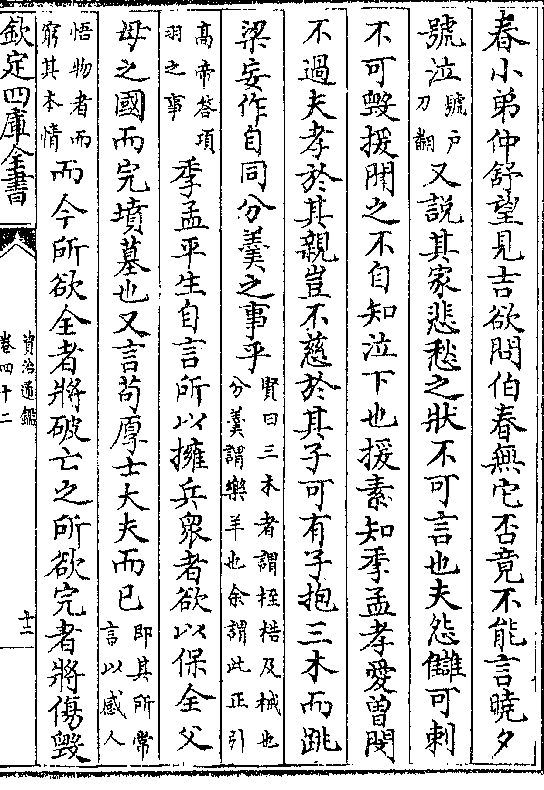 春小弟仲舒望見吉欲問伯春無它否竟不能言曉夕
號泣號戶刀翻又說其家悲愁之狀不可言也夫怨讎可刺
不可毀援聞之不自知泣下也援素知季孟孝愛曾閔
不過夫孝於其親豈不慈於其子可有子抱三木而跳
梁妄作自同分羮之事乎賢曰三木者謂桎梏及械也分羮謂樂羊也余謂此正引
髙帝答項羽之事季孟平生自言所以擁兵衆者欲以保全父
母之國而完墳墓也又言苟厚士大夫而已即其所常言以感人
悟物者而窮其本情而今所欲全者將破亡之所欲完者將傷毀
欽定四庫全書
資治通鑑
卷四十二
十二